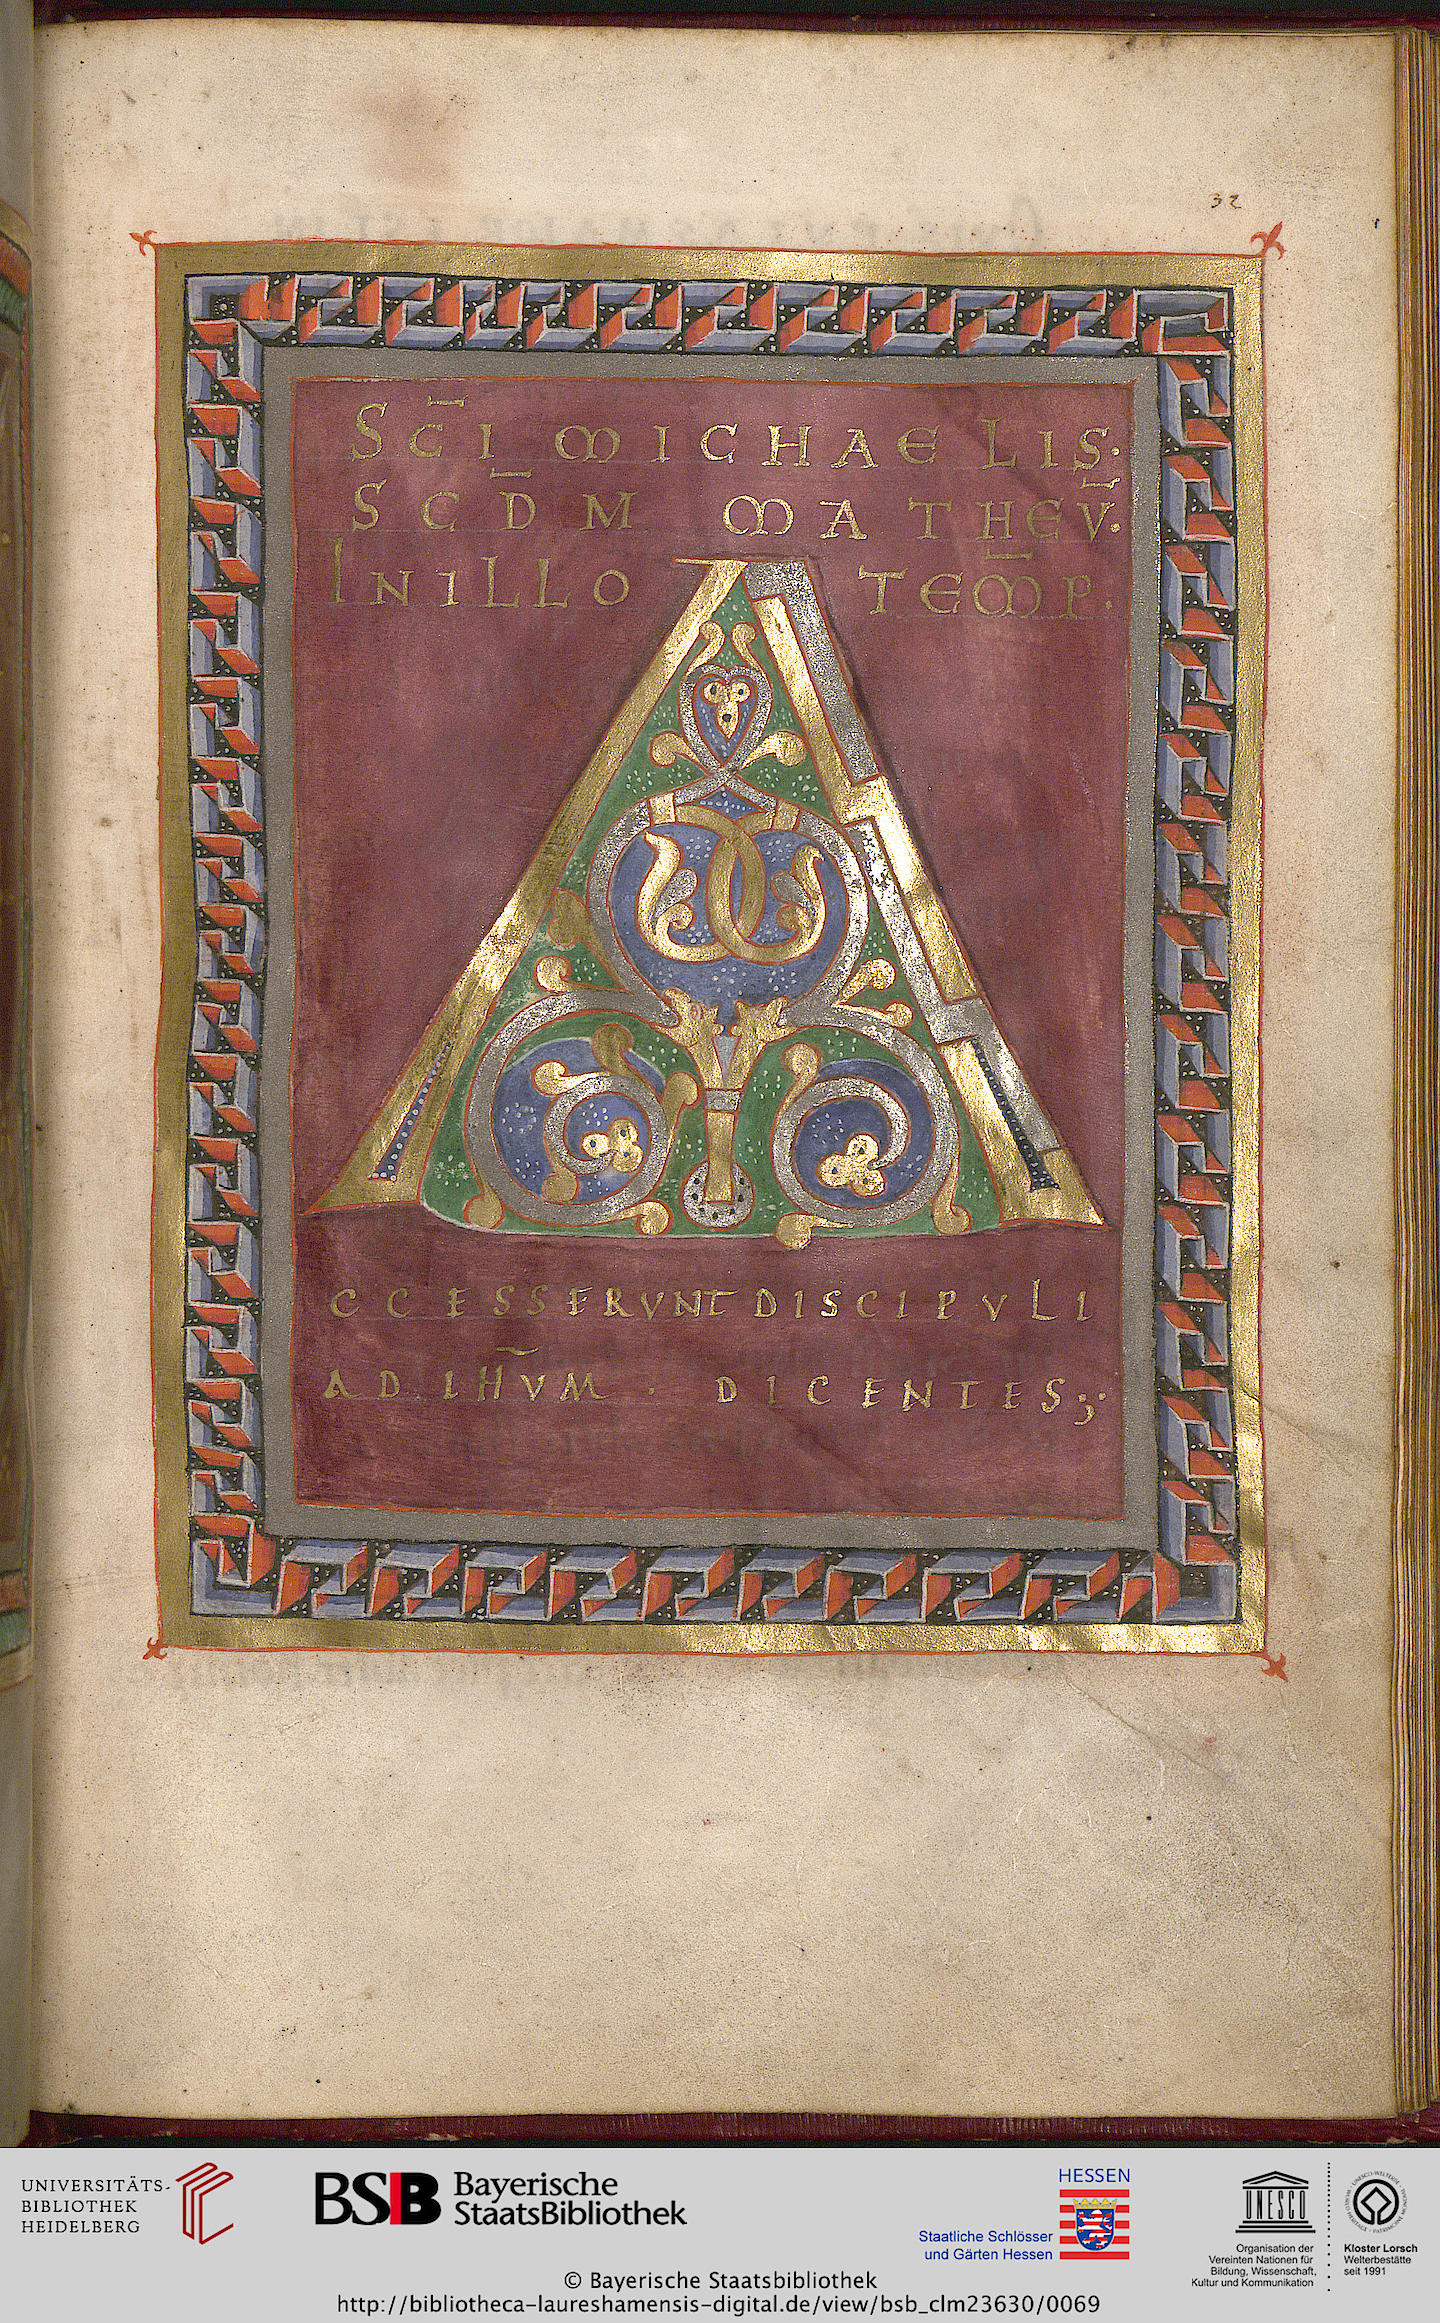 32
SC̄I MICHAELIS.
SCD̄M MATHEV̄.
IN ILLO TEMP̄.
A
CCESSERUNT DISCIPULI
AD IHV̄M · DICENTES;
UNIVERSITÄTS-
BIBLIOTHEK
HEIDELBERG
BSB Bayerische
StaatsBibliothek
HESSEN
Staatliche Schlösser
und Gärten Hessen
UNESCO
Organisation der
Vereinten Nationen für
Bildung, Wissenschaft,
Kultur und Kommunikation
Kloster Lorsch
Welterbestätte
seit 1991
© Bayerische Staatsbibliothek
http://bibliotheca-laureshamensis-digital.de/view/bsb_clm23630/0069